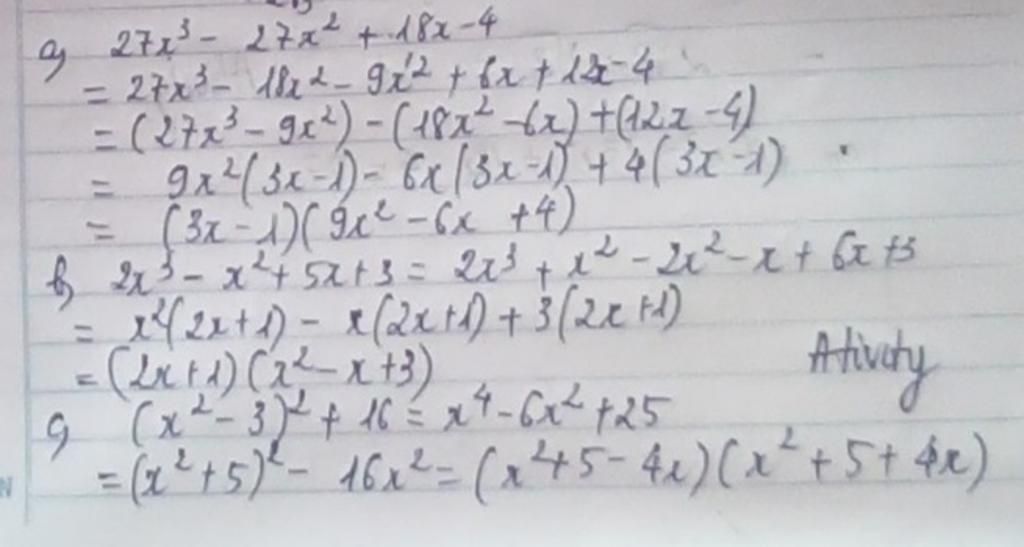 a) 27x³ - 27x² + 18x - 4
= 27x³ - 18x² - 9x² + 6x + 12x - 4
= (27x³ - 9x²) - (18x² - 6x) + (12x - 4)
= 9x²(3x - 1) - 6x(3x - 1) + 4(3x - 1)
= (3x - 1)(9x² - 6x + 4)
b) 2x³ - x² + 5x + 3 = 2x³ + x² - 2x² - x + 6x + 3
= x²(2x + 1) - x(2x + 1) + 3(2x + 1)
= (2x + 1)(x² - x + 3)
Ativity
c) (x² - 3)² + 16 = x⁴ - 6x² + 25
= (x² + 5)² - 16x² = (x² + 5 - 4x)(x² + 5 + 4x)